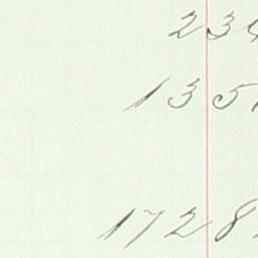 23
135
1728